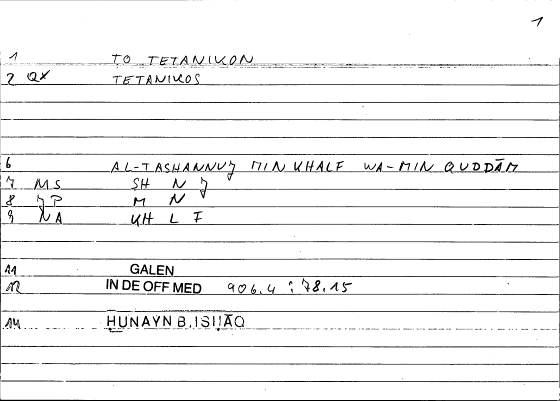 1
1 TO TETANIKON
2 QX TETANIKOS
6 AL-TASHANNUJ MIN KHALF WA-MIN QUDDĀM
7 MS SH N J
8 JP M N
9 NA KH L F
11 GALEN
12 IN DE OFF MED 906.4 : 78.15
14 ḤUNAYN B. ISḤĀQ